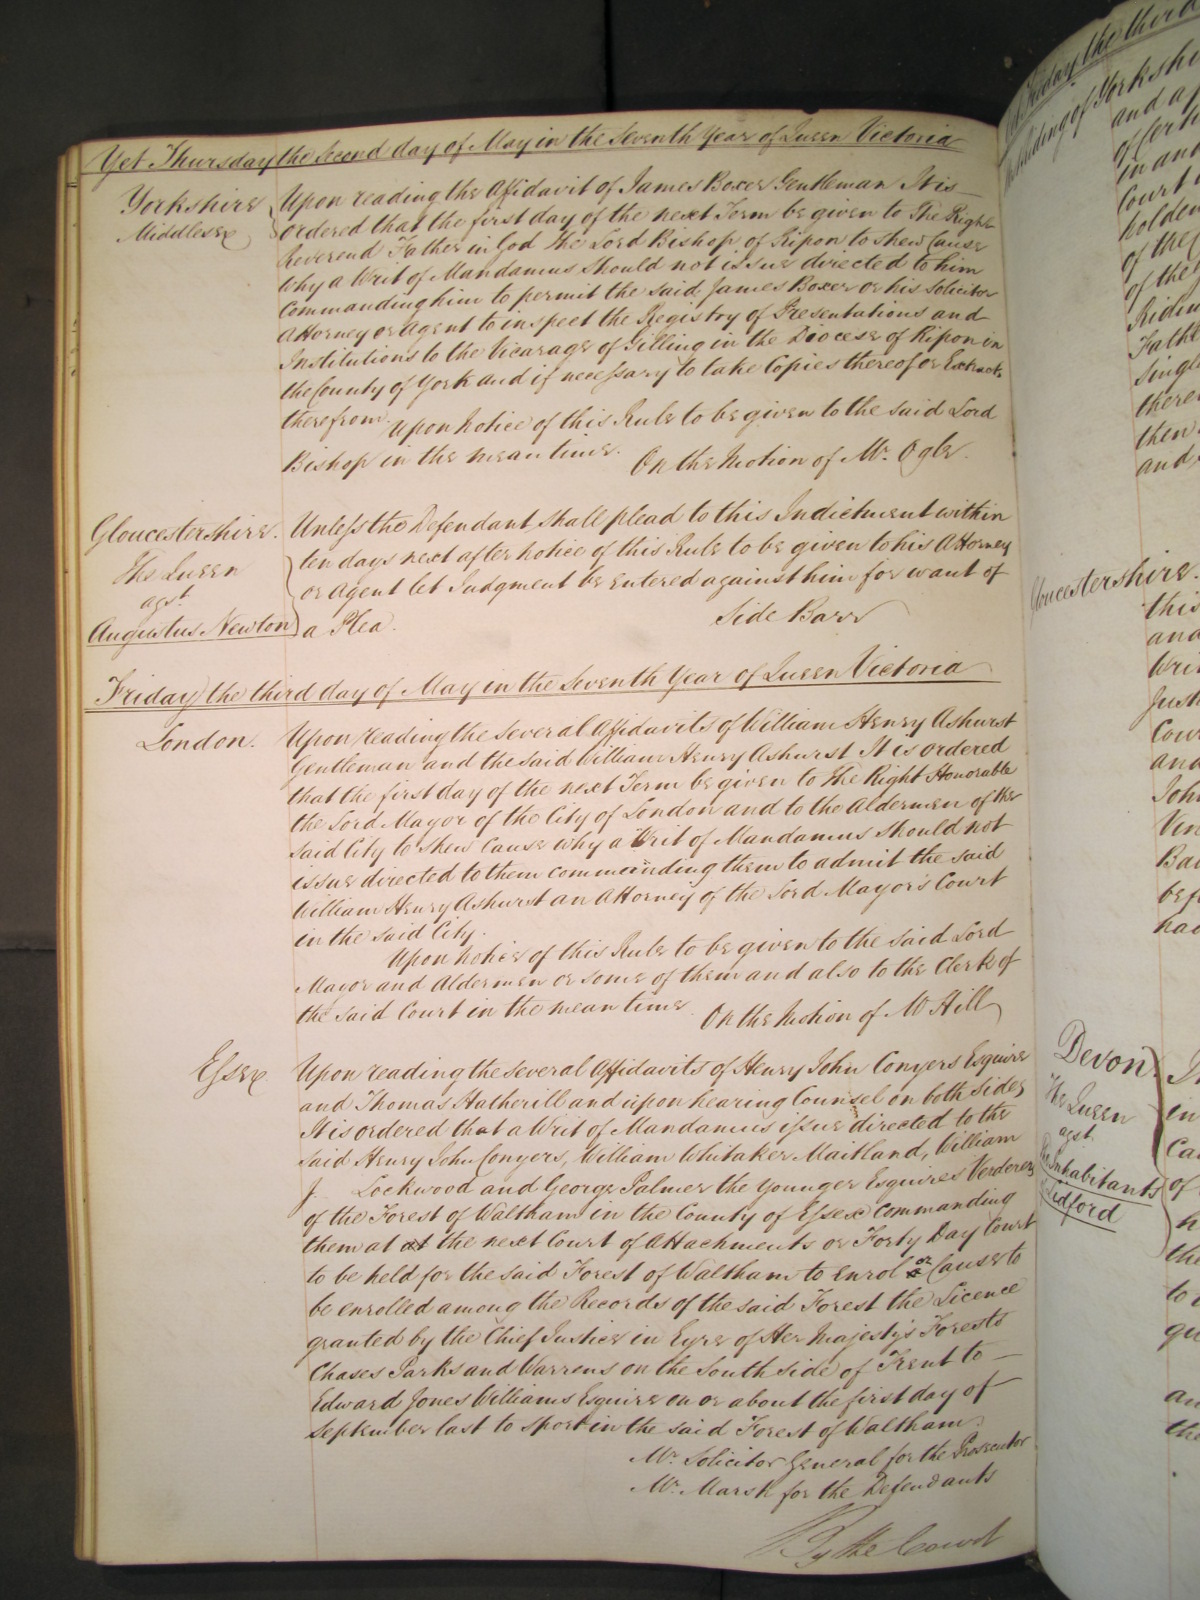 Yet Thursday the Second day of May in the Seventh Year of Queen Victoria
Yorkshire
Middlesex
Upon reading the Affidavit of James Boxer Gentleman It is
ordered that the first day of the next Term be given to The Right
Reverend Father in God The Lord Bishop of Ripon to shew Cause
why a Writ of Mandamus should not issue directed to him
Commanding him to permit the said James Boxer or his Solicitor
Attorney or Agent to inspect the Registry of Presentations and
Institutions to the Vicarage of Gilling in the Diocese of Ripon in
the County of York and if necessary to take Copies thereof or Extracts
therefrom. Upon Notice of this Rule to be given to the said Lord
Bishop in the mean time. On the Motion of Mr. Ogle.
Gloucestershire.
The Queen
agst
Augustus Newton
Unless the Defendant shall plead to this Indictment within
ten days next after notice of this Rule to be given to his Attorney
or Agent let Judgment be entered against him for want of
a Plea. Side Barr
Friday the third day of May in the Seventh Year of Queen Victoria
London.
Upon reading the several Affidavits of William Henry Ashurst
Gentleman and the said William Henry Ashurst It is ordered
that the first day of the next Term be given to The Right Honorable
the Lord Mayor of the City of London and to the Aldermen of the
said City to shew Cause why a Writ of Mandamus should not
issue directed to them commanding them to admit the said
William Henry Ashurst an Attorney of the Lord Mayor's Court
in the said City.
Upon notice of this Rule to be given to the said Lord
Mayor and Aldermen or some of them and also to the Clerk of
the said Court in the mean time. On the Motion of Mr Hill
Essex
Upon reading the several Affidavits of Henry John Conyers Esquire
and Thomas Hatherill and upon hearing Counsel on both sides
It is ordered that a Writ of Mandamus issue directed to the
said Henry John Conyers, William Whitaker Maitland, William
J. Lockwood and George Palmer the Younger Esquires Verderers
of the Forest of Waltham in the County of Essex Commanding
them at at the next Court of Attachments or Forty Day Court
to be held for the said Forest of Waltham to enrol or Cause to
be enrolled among the Records of the said Forest the Licence
granted by the Chief Justice in Eyre of Her Majesty's Forests
Chases Parks and Warrens on the South side of Trent to
Edward Jones Williams Esquire on or about the first day of
September last to sport in the said Forest of Waltham.
Mr. Solicitor General for the Prosecutor
Mr. Marsh for the Defendants
By the Court
Friday the third
of Yorkshi
and a p
of Cer
in and
Court
holden
of the
of the
Ridin
Fathe
Singl
there
then
and
Gloucestershire.
this
and
Wri
Just
Cour
and
John
Ven
Bar
bef
had
Devon
The Queen
agst
The Inhabitants
Bidford
in
Ca
of
h
the
to
qu
an
the